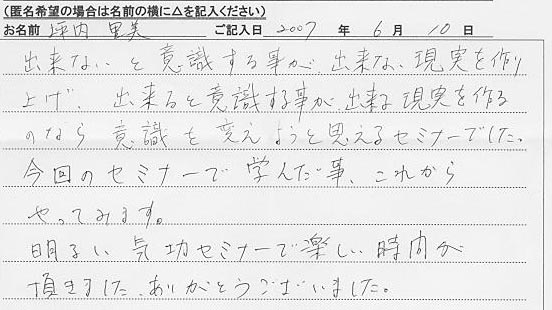 (匿名希望の場合は名前の横に△を記入ください)
お名前 坪内 里美 ご記入日 2007 年 6 月 10 日
出来ないと意識する事が、出来ない現実を作り
上げ、出来ると意識する事が、出来る現実を作る
のなら意識を変えようと思えるセミナーでした。
今回のセミナーで学んだ事、これから
やってみます。
明るい気功セミナーで楽しい時間が
頂きました。ありがとうございました。